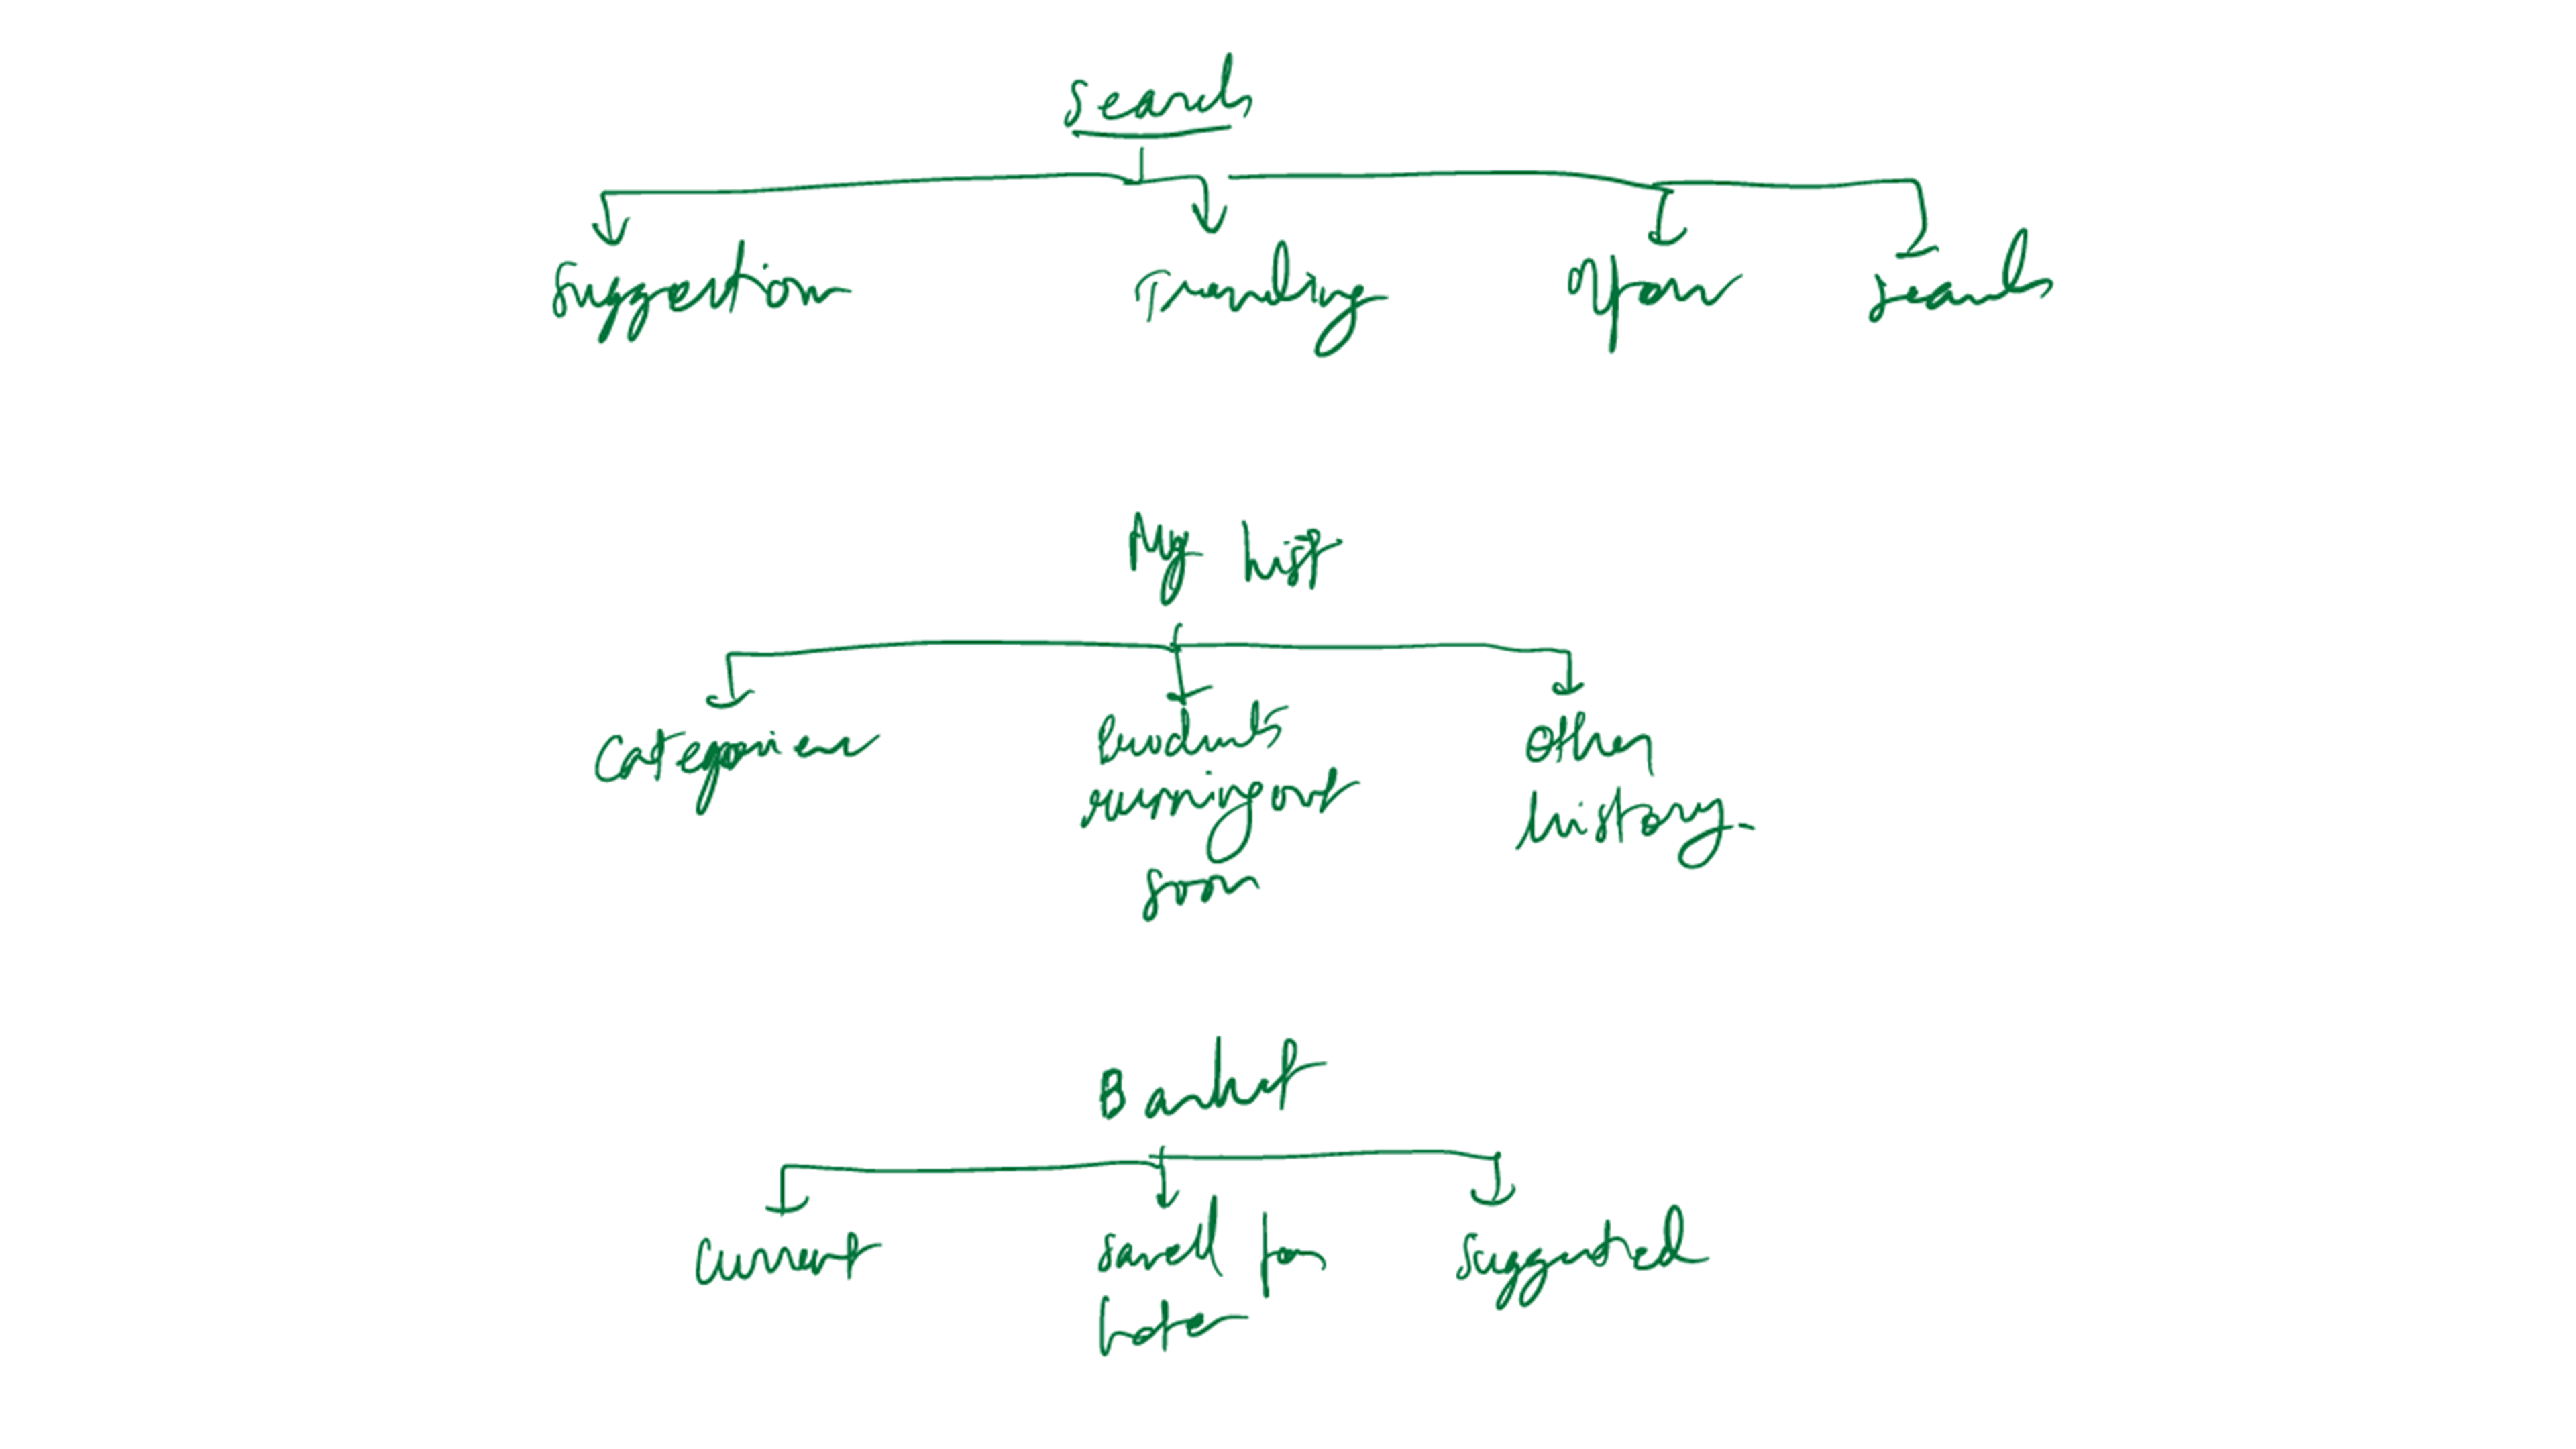 Search
Suggestion Trending Offers Search
My List
Categories Products Other
running out history.
soon
Basket
Current Saved for Suggested
Later